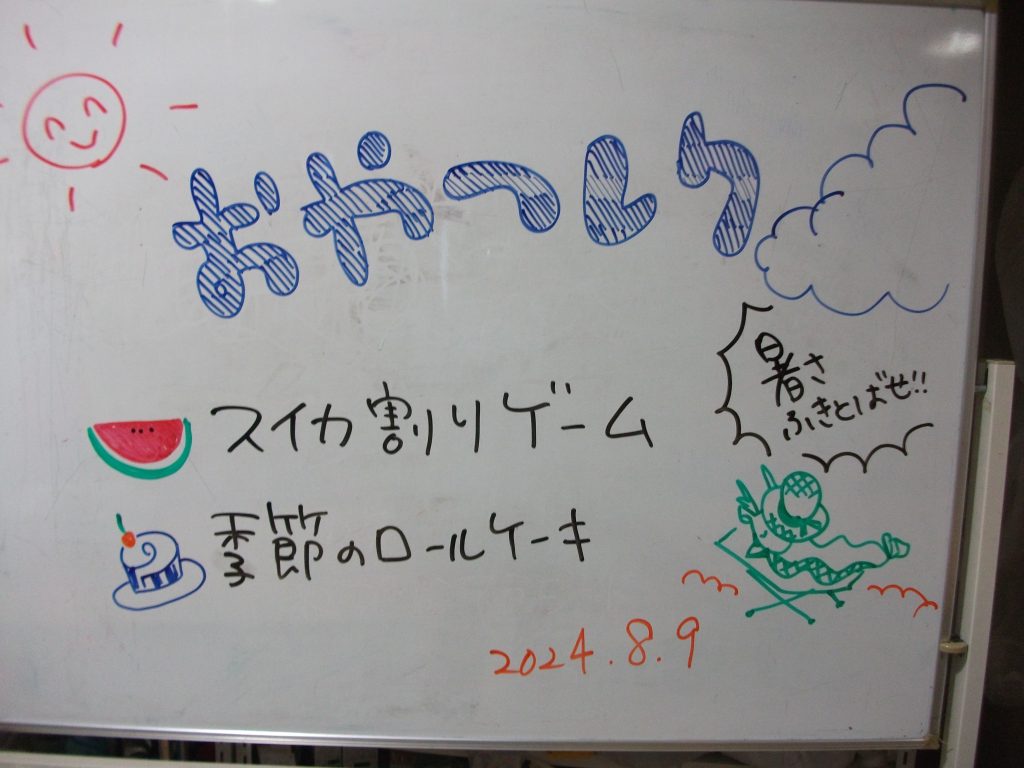 おやつレク
スイカ割りゲーム
季節のロールケーキ
暑さ
ふきとばせ!!
2024.8.9